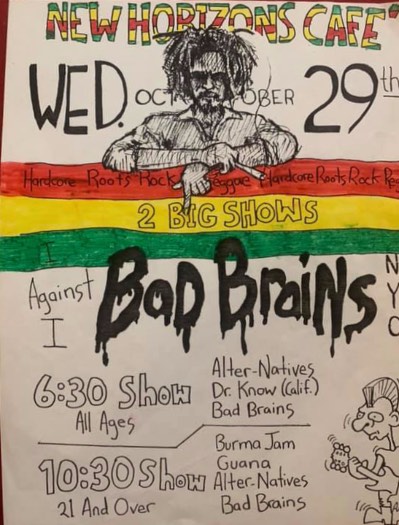 NEW HORIZONS CAFE'
WED. OCTOBER 29th
Hardcore Roots Rock Reggae Hardcore Roots Rock Reg
2 BIG SHOWS
I
Against
I
BAD BRAINS
NYC
6:30 Show
All Ages
Alter-Natives
Dr. Know (Calif.)
Bad Brains
10:30 Show
21 And Over
Burma Jam
Guana
Alter-Natives
Bad Brains